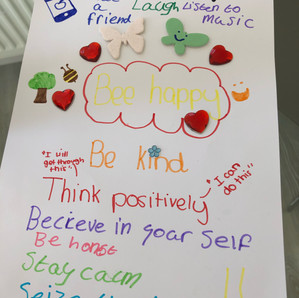 a friend
Laugh
Listen to music
Bee happy
Be kind
"I will get through this"
"I can do this"
Think positively
Becieve in your Self
Be honest
Stay calm
Seize